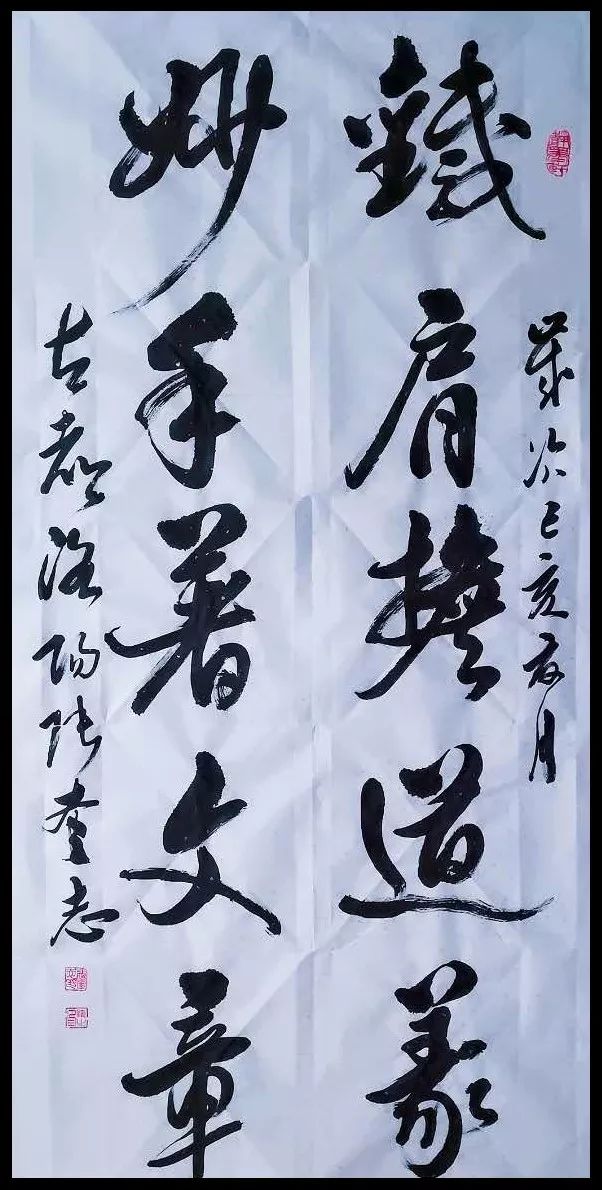 歲次己亥夏月
鐵肩擔道義
妙手著文章
古都洛陽張奎志